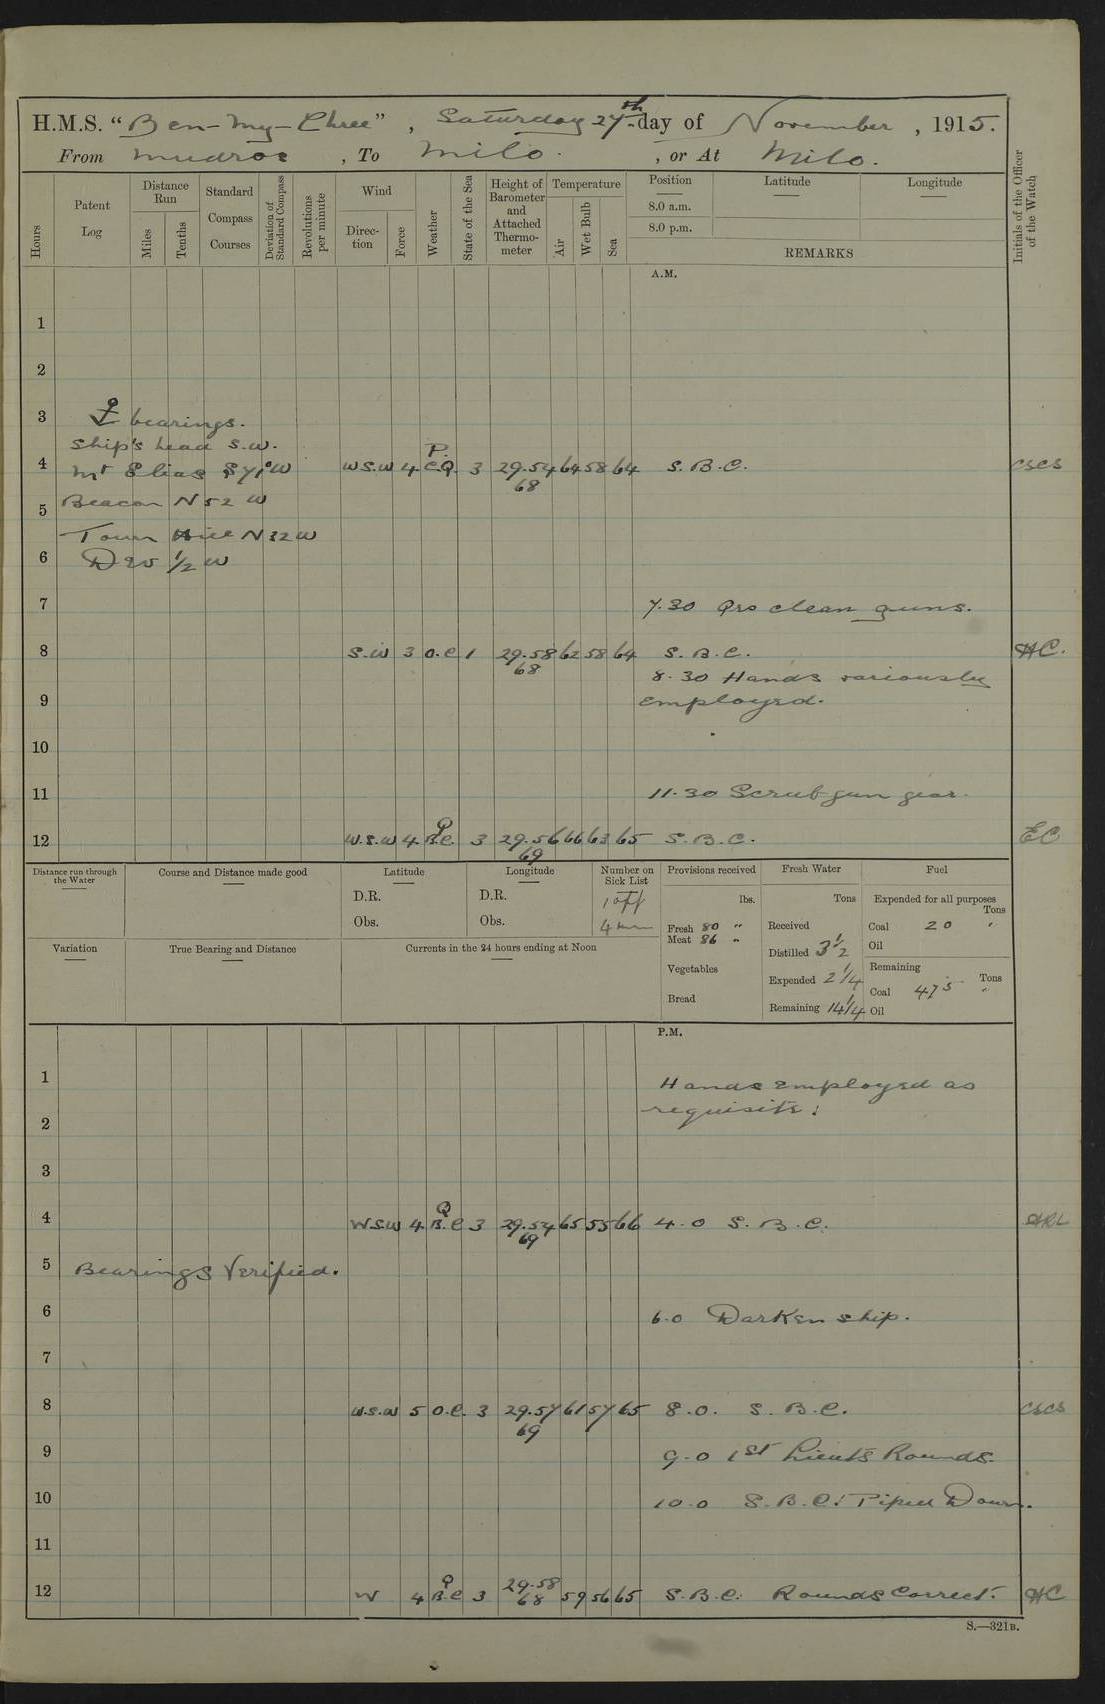 H.M.S. "Ben-my-Chree", Saturday 27th day of November, 1915.
From Mudros, To Milo., or At Milo.
Hours
Patent Log
Distance Run
Miles
Tenths
Standard Compass Courses
Deviation of Standard Compass
Revolutions per minute
Wind
Direction
Force
Weather
State of the Sea
Height of Barometer and Attached Thermometer
Temperature
Air
Wet Bulb
Sea
Position
8.0 a.m.
8.0 p.m.
Latitude
Longitude
REMARKS
Initials of the Officer of the Watch
A.M.
1
2
3 bearings.
Ship's head S.W.
4 Mt Elias W W.S.W 4 P. C.Q. 3 29.54 68 64 58 64 S.B.C. CSCS
5 Beacon N 52 W
Town N 32 W
6 ½ W
7 7.30 Qrs clean guns.
8 S.W 3 O.C 1 29.58 68 62 58 64 S.B.C. HC.
8.30 Hands variously
9 employed.
10
11 11.30 Scrub gun gear.
12 W.S.W 4 Q B.C. 3 29.56 69 66 63 65 S.B.C. EC
Distance run through the Water
Course and Distance made good
Latitude
D.R.
Obs.
Longitude
D.R.
Obs.
Number on Sick List
1 off
4 men
Provisions received
lbs.
Fresh 80 "
Meat 86 "
Vegetables
Bread
Fresh Water
Tons
Received
Distilled 3½
Expended 2¼
Remaining 14¼
Fuel
Expended for all purposes
Tons
Coal 20 "
Oil
Remaining
Tons
Coal 475 "
Oil
Variation
True Bearing and Distance
Currents in the 24 hours ending at Noon
P.M.
1 Hands employed as
2 requisite:
3
4 W.S.W 4 Q B.C 3 29.54 69 65 55 66 4.0 S.B.C. ARL
5 Bearings Verified.
6 6.0 Darken ship.
7
8 W.S.W 5 O.C. 3 29.57 69 61 57 65 8.0. S.B.C. CSCS
9 9.0 1st Lieuts Rounds.
10 10.0 S.B.C: Piped Down.
11
12 W 4 Q B.C 3 29.58 68 59 56 65 S.B.C. Rounds Correct. HC
S.—321B.